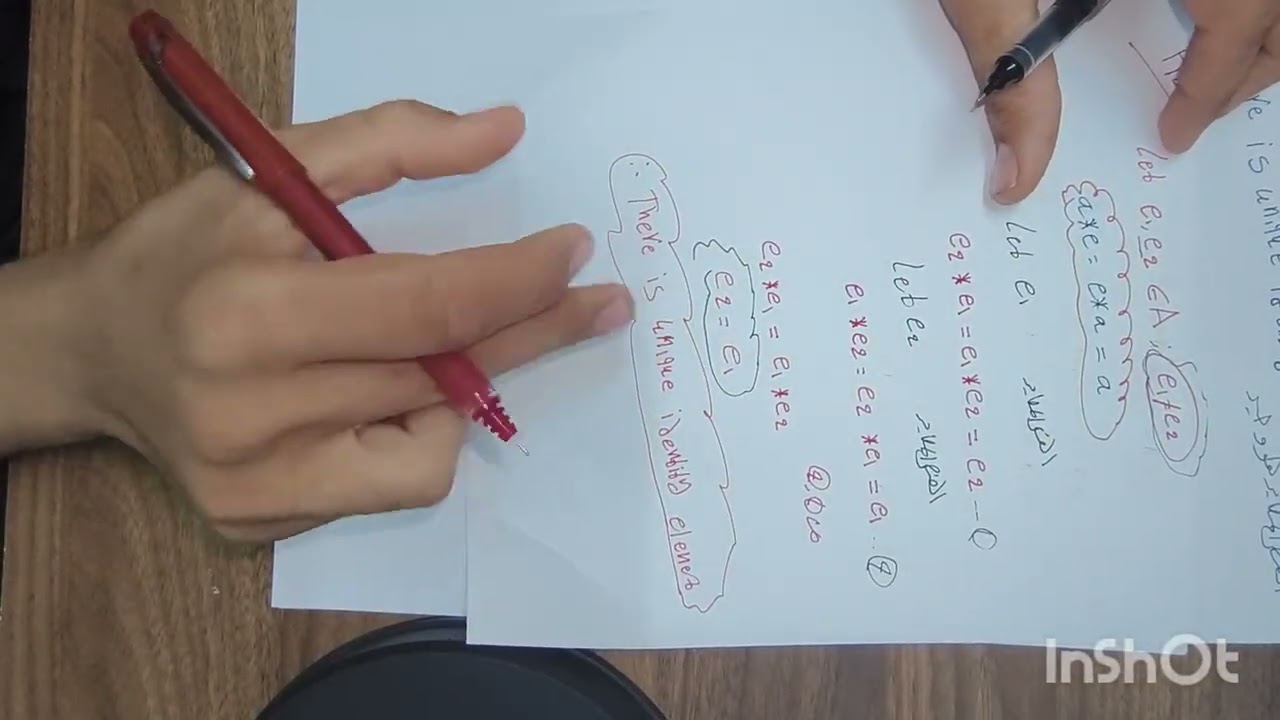 ve is unique
Let e₁, e₂ ∈ A ; e₁ ≠ e₂
a*e = e*a = a
Let e₁ المحايد
e₂ * e₁ = e₁ * e₂ = e₂ -- ①
Let e₂ المحايد
e₁ * e₂ = e₂ * e₁ = e₁ .. ②
e₂ * e₁ = e₁ * e₂
e₂ = e₁
∴ There is unique identity elenet
InShOt